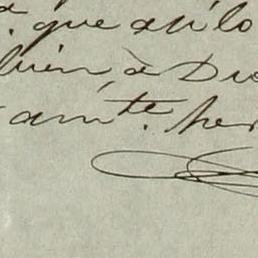 que asilo
bien, à Dio
amte. her